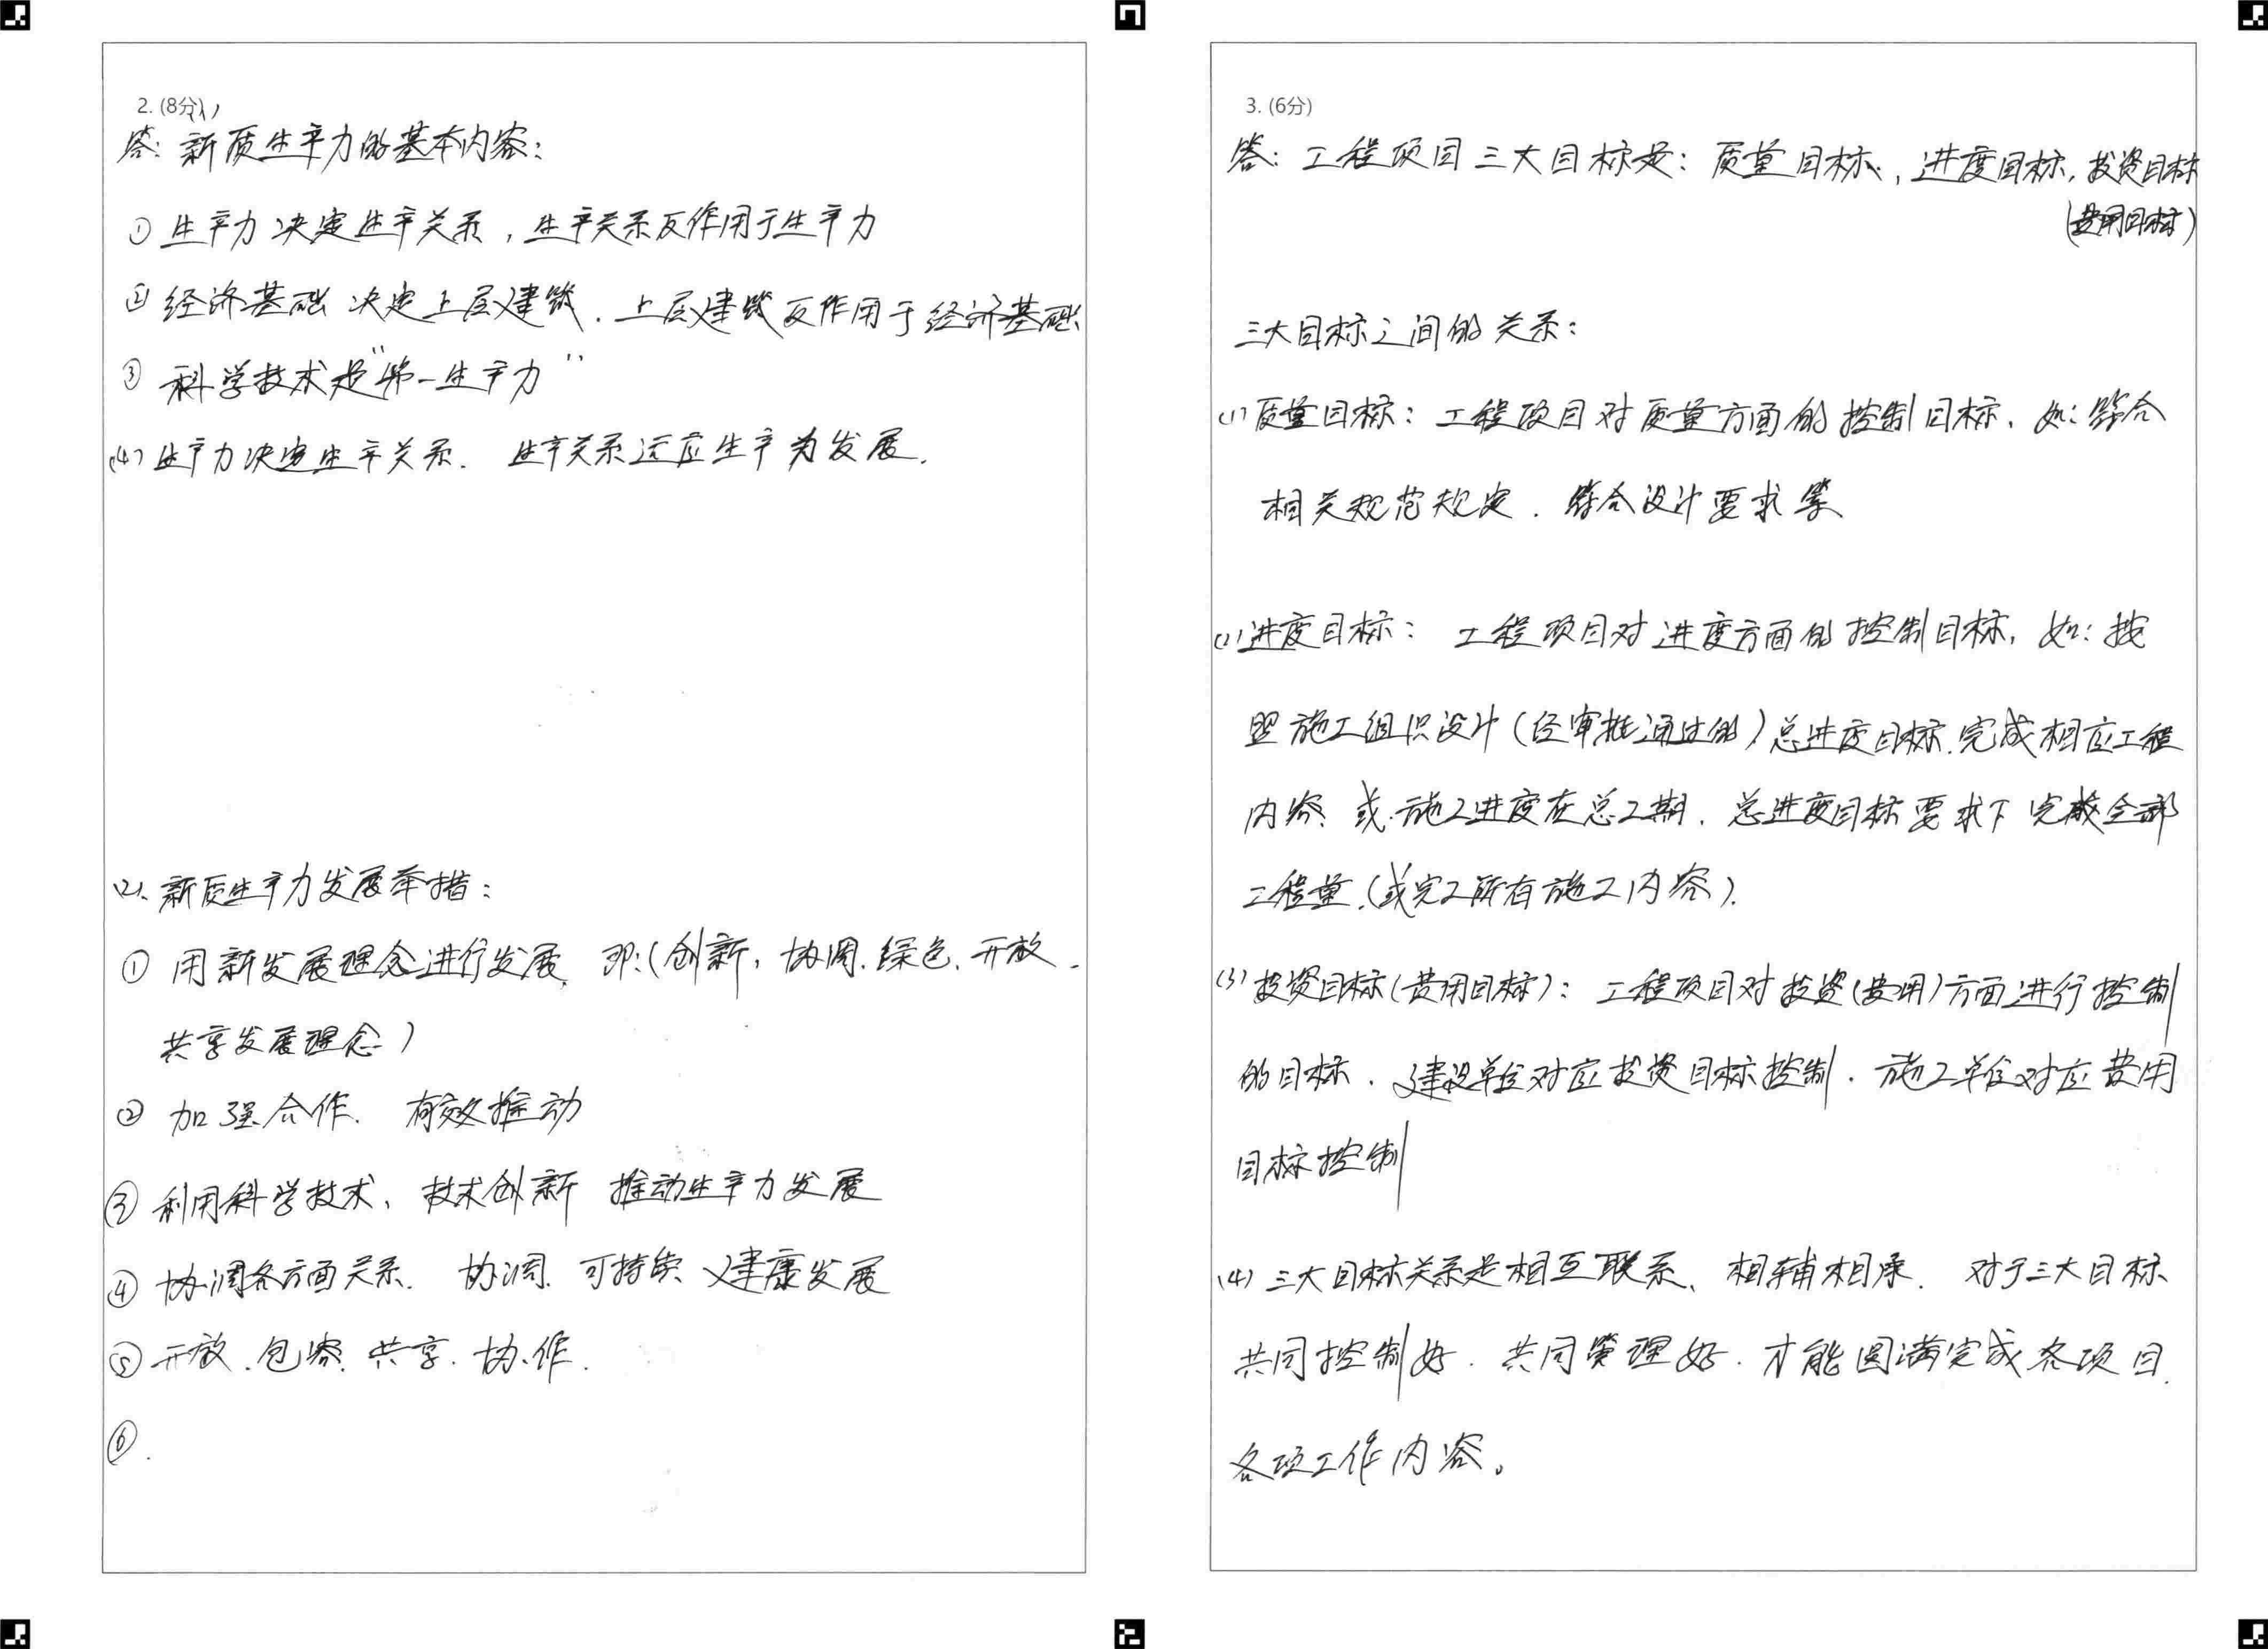 2. (8分)(1)
答: 新质生产力的基本内容:
① 生产力决定生产关系, 生产关系反作用于生产力
② 经济基础 决定上层建筑. 上层建筑反作用于经济基础
③ 科学技术是"第一生产力"
(4) 生产力决定生产关系. 生产关系适应生产力发展.
(2). 新质生产力发展举措:
① 用新发展理念进行发展. 即:(创新, 协调. 绿色. 开放.
共享发展理念)
② 加强合作. 有效推动
③ 利用科学技术、技术创新 推动生产力发展
④ 协调各方面关系. 协调. 可持续 健康发展
⑤ 开放. 包容. 共享. 协作.
⑥.
3. (6分)
答: 工程项目三大目标是: 质量目标, 进度目标, 投资目标
(费用目标)
三大目标之间的关系:
(1) 质量目标: 工程项目对质量方面的控制目标. 如: 符合
相关规范规定. 符合设计要求等
(2) 进度目标: 工程项目对进度方面的控制目标, 如: 按
照施工组织设计(经审批通过的)总进度目标. 完成相应工程
内容. 或. 施工进度在总工期. 总进度目标要求下完成全部
工程量.(或完工所有施工内容).
(3) 投资目标(费用目标): 工程项目对投资(费用)方面进行控制
的目标. 建设单位对应投资目标控制. 施工单位对应费用
目标控制
(4) 三大目标关系是相互联系、相辅相承. 对于三大目标
共同控制好. 共同管理好. 才能圆满完成各项目.
各项工作内容。